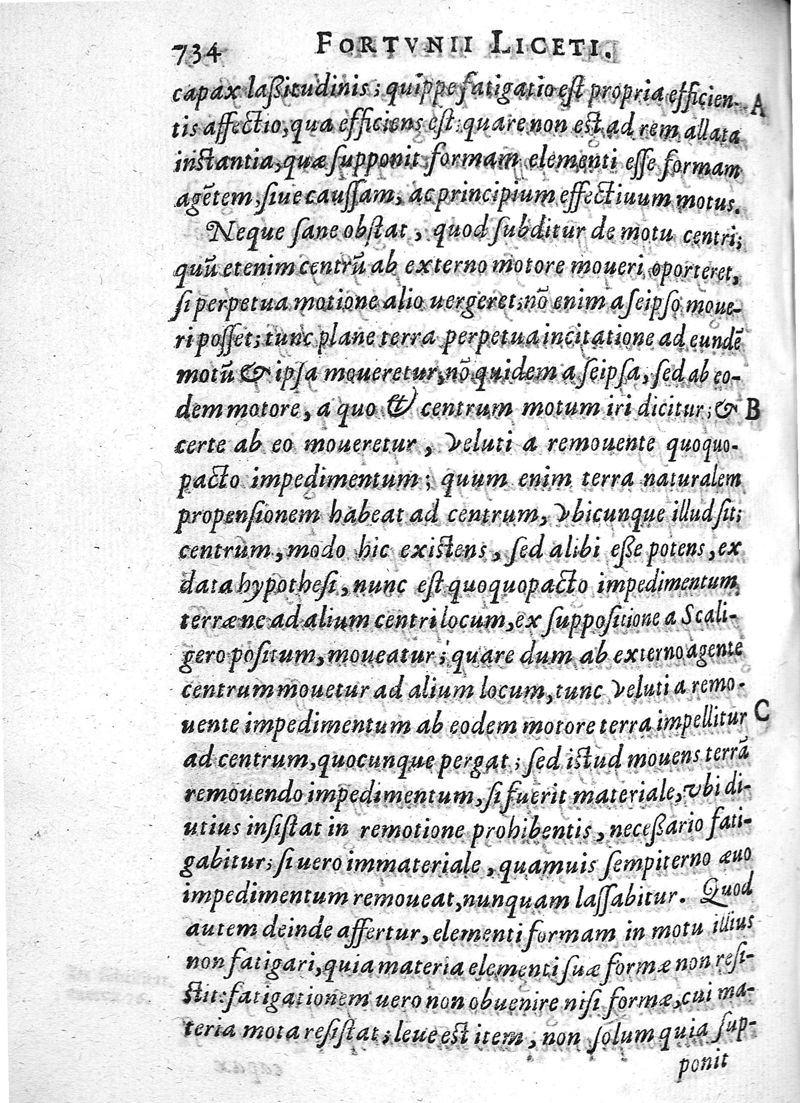 734 FORTVNII LICETI.
capax laßitudinis; quippe fatigatio est propria efficien- A
tis affectio, qua efficiens est: quare non est ad rem allata
instantia, quæ supponit formam elementi esse formam
agẽtem, siue caussam, ac principium effectiuum motus.
Neque sane obstat, quod subditur de motu centri;
quũ etenim centrũ ab externo motore moueri oporteret,
si perpetua motione alio uergeret; nõ enim a seipso moue-
ri posset; tunc plane terra perpetua incitatione ad eundẽ
motũ & ipsa moueretur, nõ quidem a seipsa, sed ab eo-
dem motore, a quo & centrum motum iri dicitur; & B
certe ab eo moueretur, veluti a remouente quoquo-
pacto impedimentum; quum enim terra naturalem
propensionem habeat ad centrum, vbicunque illud sit;
centrum, modo hic existens, sed alibi eße potens, ex
data hypothesi, nunc est quoquopacto impedimentum
terræ ne ad alium centri locum, ex suppositione a Scali-
gero positum, moueatur; quare dum ab externo agente
centrum mouetur ad alium locum, tunc veluti a remo-
uente impedimentum ab eodem motore terra impellitur C
ad centrum, quocunque pergat; sed istud mouens terrã
remouendo impedimentum, si fuerit materiale, vbi di-
utius insistat in remotione prohibentis, neceßario fati-
gabitur; si uero immateriale, quamuis sempiterno æuo
impedimentum remoueat, nunquam lassabitur. Quod
autem deinde affertur, elementi formam in motu illius
non fatigari, quia materia elementi suæ formæ non resi-
stit: fatigationem uero non obuenire nisi formæ, cui ma-
teria mota resistat; leue est item, non solum quia sup-
ponit